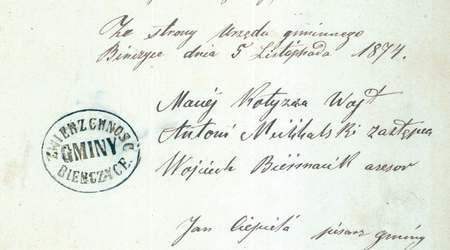 Ze strony Urzędu gminnego
Bieńczyce dnia 5 Listopada 1874.
Maciej Kotyzza Wojt
Antoni Michalski zastępca
ZWIERZCHNOŚĆ
GMINY
BIENCZYCE.
Wojciech asesor
Jan Ciepiela pisarz gminny